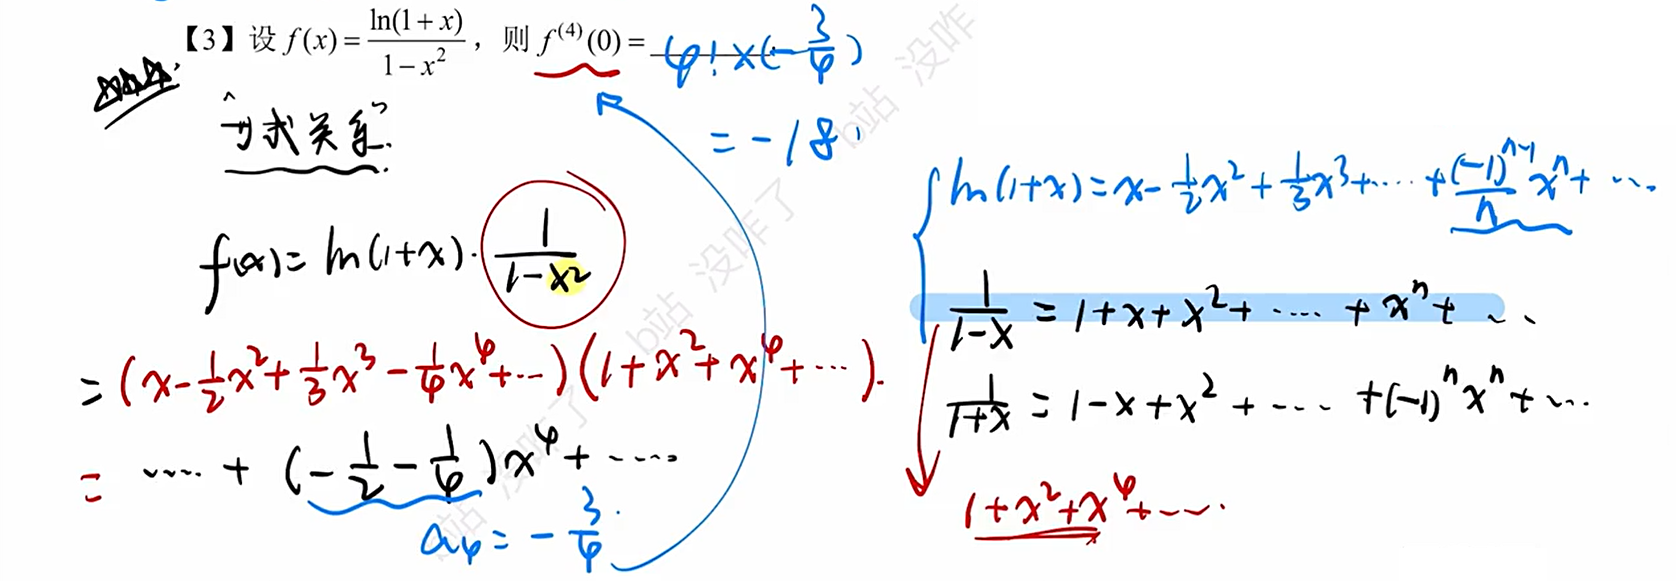 【3】设 f(x) = ln(1+x)/(1−x²)，则 f⁽⁴⁾(0) = 4! × (−3/4)
= −18
f(x) = ln(1+x) · 1/(1−x²)
= (x − 1/2 x² + 1/3 x³ − 1/4 x⁴ + ⋯)(1 + x² + x⁴ + ⋯).
= ⋯⋯ + (−1/2 − 1/4)x⁴ + ⋯⋯
a₄ = −3/4
ln(1+x) = x − 1/2 x² + 1/3 x³ + ⋯⋯ + (−1)ⁿ⁻¹/n xⁿ + ⋯
1/(1−x) = 1 + x + x² + ⋯⋯ + xⁿ + ⋯
1/(1+x) = 1 − x + x² + ⋯⋯ + (−1)ⁿ xⁿ + ⋯
1 + x² + x⁴ + ⋯⋯
b站 没咋了
b站 没咋了
b站 没咋